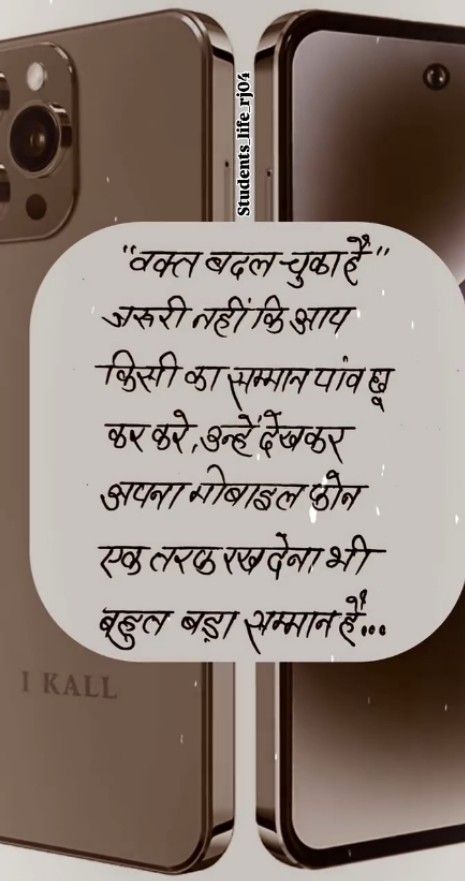 Students_life_rj04
"वक्त बदल चुका है"
जरुरी नहीं कि आप
किसी का सम्मान पांव छू
कर करे, उन्हें देखकर
अपना मोबाइल फोन
एक तरफ रख देना भी
बहुत बड़ा सम्मान है...
I KALL